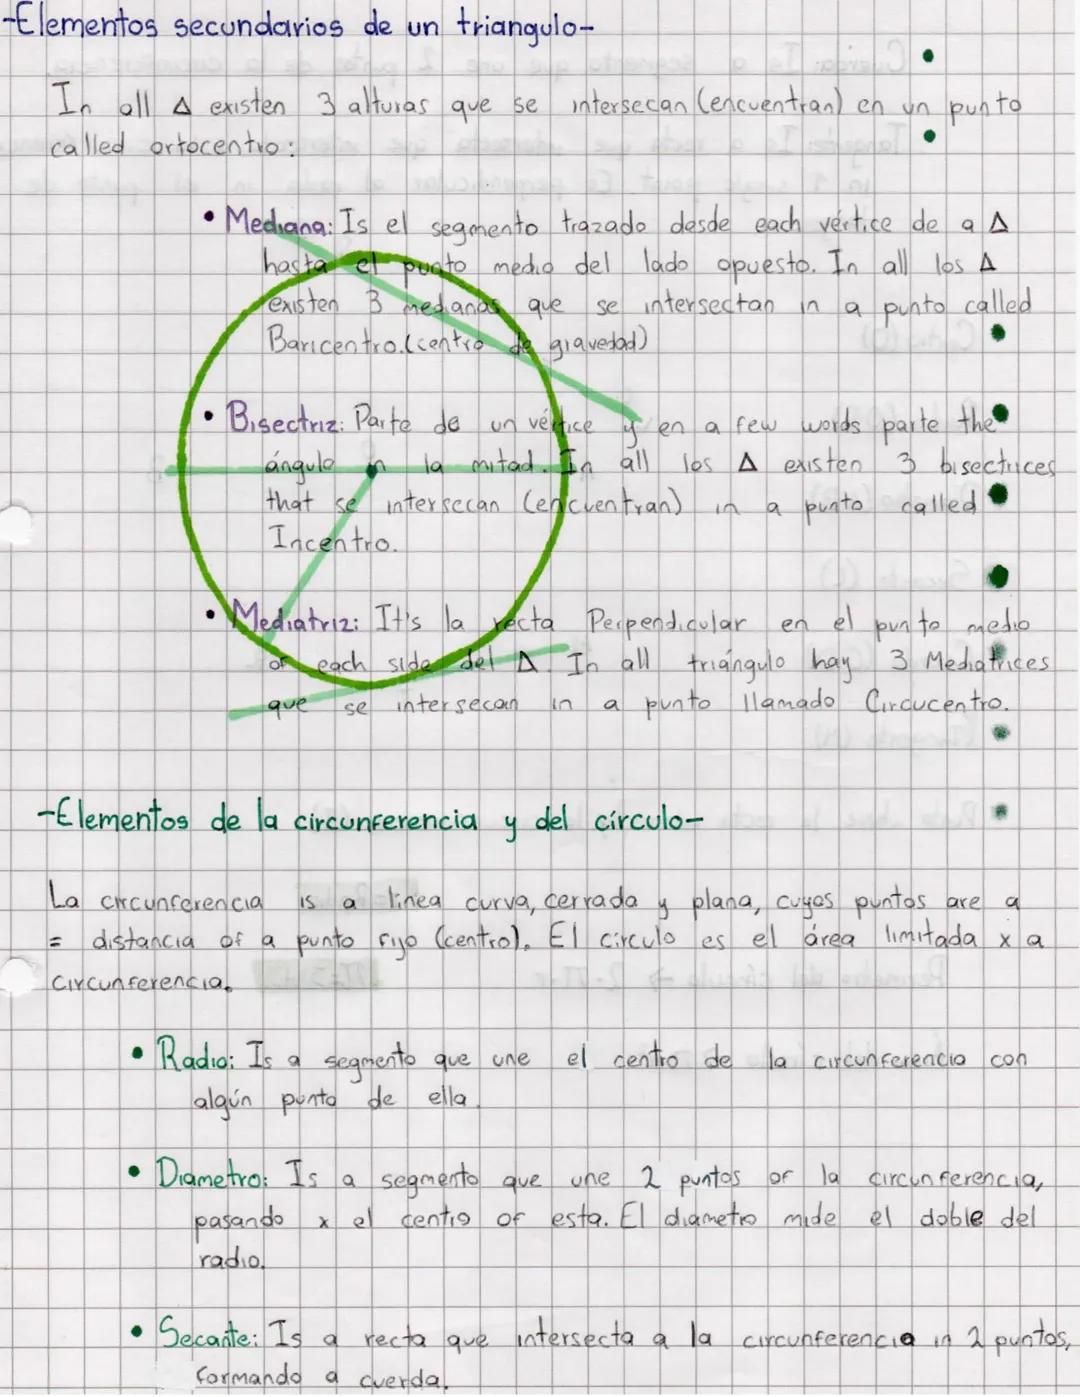 -Elementos secundarios de un triangulo-
In all Δ existen 3 alturas que se intersecan (encuentran) en un punto
called ortocentro:
• Mediana: Is el segmento trazado desde each vértice de a Δ
hasta el punto medio del lado opuesto. In all los Δ
existen 3 medianas que se intersectan in a punto called
Baricentro.(centro de gravedad)
• Bisectriz: Parte de un vértice y en a few words parte the
ángulo in la mitad. In all los Δ existen 3 bisectrices
that se intersecan (encuentran) in a punto called
Incentro.
• Mediatriz: It's la recta Perpendicular en el punto medio
of each side del Δ. In all triángulo hay 3 Mediatrices
que se intersecan in a punto llamado Circucentro.
-Elementos de la circunferencia y del círculo-
La circunferencia is a línea curva, cerrada y plana, cuyos puntos are a
= distancia of a punto fijo (centro). El circulo es el área limitada x a
circunferencia.
• Radio: Is a segmento que une el centro de la circunferencia con
algún punto de ella.
• Diametro: Is a segmento que une 2 puntos of la circunferencia,
pasando x el centro of esta. El diametro mide el doble del
radio.
• Secante: Is a recta que intersecta a la circunferencia in 2 puntos,
formando a cuerda.